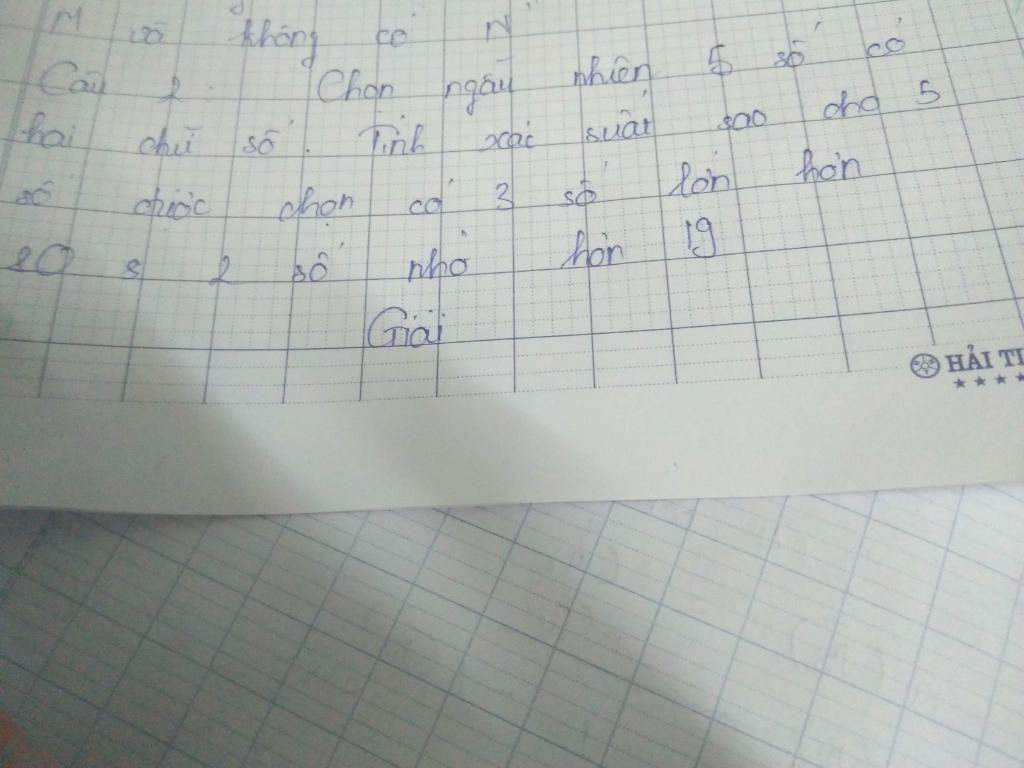 M và không có N
Câu 2. Chọn ngẫu nhiên 5 số có
hai chữ số. Tính xác suất sao cho 5
số được chọn có 3 số lớn hơn
20 s 2 số nhỏ hơn 19
Giải
HẢI TI